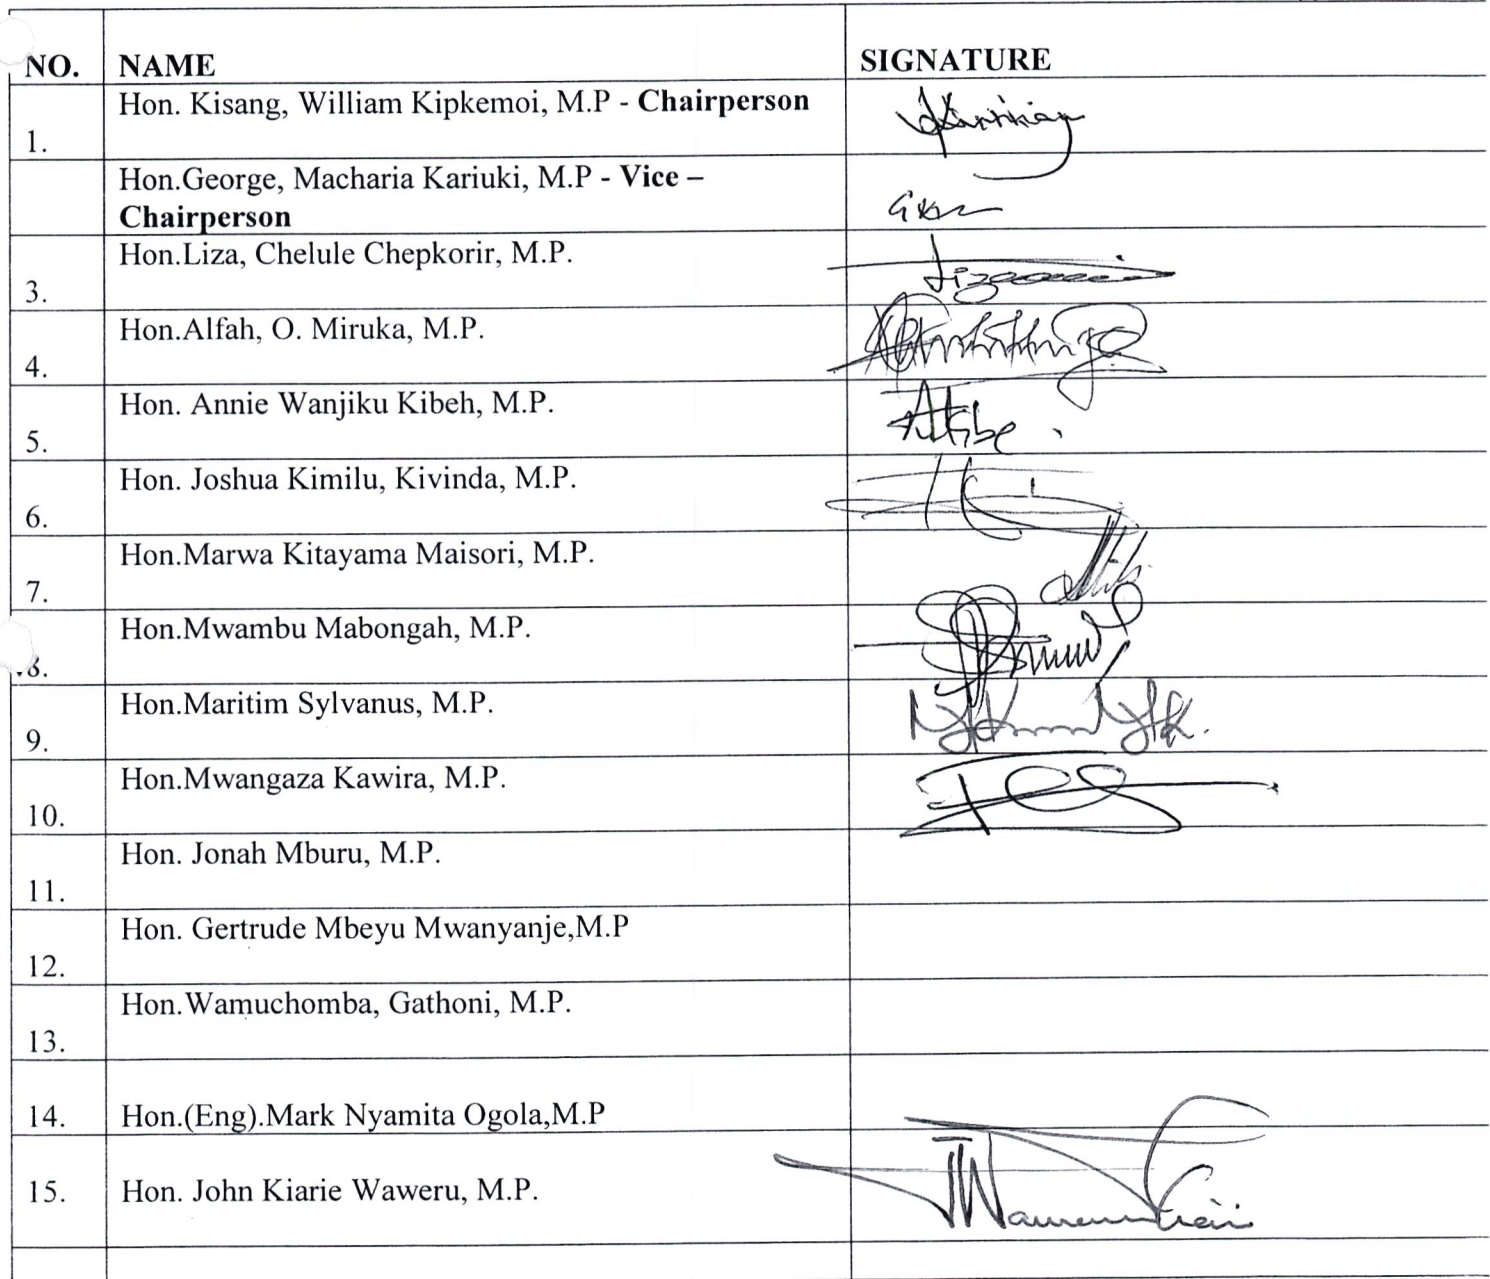 NO. NAME SIGNATURE
Hon. Kisang, William Kipkemoi, M.P - Chairperson
1.
Hon.George, Macharia Kariuki, M.P - Vice –
Chairperson
Hon.Liza, Chelule Chepkorir, M.P.
3.
Hon.Alfah, O. Miruka, M.P.
4.
Hon. Annie Wanjiku Kibeh, M.P.
5.
Hon. Joshua Kimilu, Kivinda, M.P.
6.
Hon.Marwa Kitayama Maisori, M.P.
7.
Hon.Mwambu Mabongah, M.P.
8.
Hon.Maritim Sylvanus, M.P.
9.
Hon.Mwangaza Kawira, M.P.
10.
Hon. Jonah Mburu, M.P.
11.
Hon. Gertrude Mbeyu Mwanyanje,M.P
12.
Hon.Wamuchomba, Gathoni, M.P.
13.
14. Hon.(Eng).Mark Nyamita Ogola,M.P
15. Hon. John Kiarie Waweru, M.P.